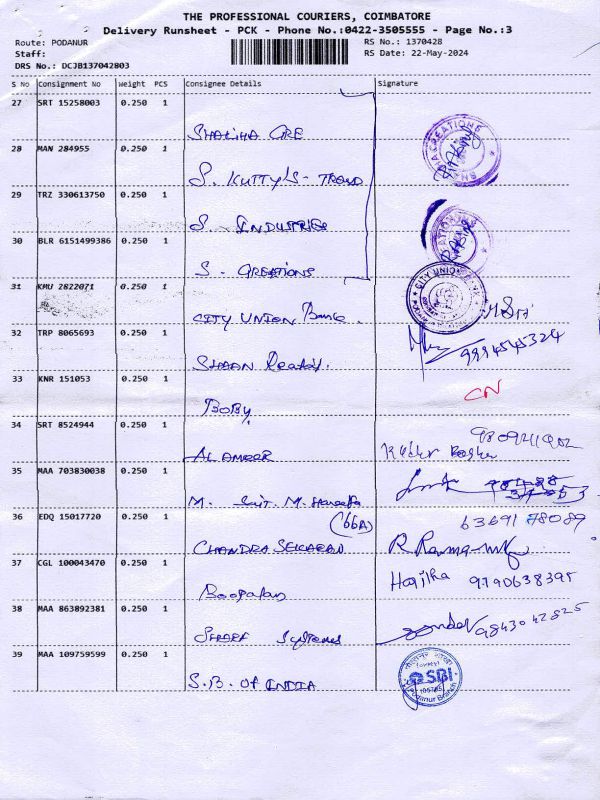 THE PROFESSIONAL COURIERS, COIMBATORE
Delivery Runsheet - PCK - Phone No.:0422-3505555 - Page No.:3
Route: PODANUR RS No.: 1370428
Staff: RS Date: 22-May-2024
DRS No.: DCJB137042803
S No Consignment No Weight PCS Consignee Details Signature
27 SRT 15258003 0.250 1
28 MAN 284955 0.250 1
S. KUTTY'S - TREND
29 TRZ 330613750 0.250 1
S. INDUSTRIES
30 BLR 6151499386 0.250 1
S. CREATIONS
31 KMU 2822071 0.250 1
CITY UNION Bank.
32 TRP 8065693 0.250 1 9994545324
SHAAN
33 KNR 151053 0.250 1
CN
BOBY
34 SRT 8524944 0.250 1
AL AMEER
35 MAA 703830038 0.250 1
M.
36 EDQ 15017720 0.250 1 (66A) 6369178089
CHANDRA SEKARAN R.
37 CGL 100043470 0.250 1 Hajira 9790638395
Boopalan
38 MAA 863892381 0.250 1 9843042825
Systems
39 MAA 109759599 0.250 1
S.B. OF INDIA SBI